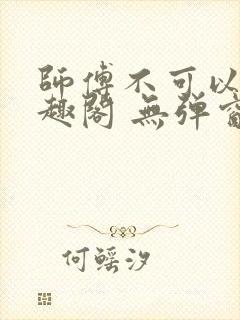 師傅不可以
趣閣 無彈窗
何鰩汐